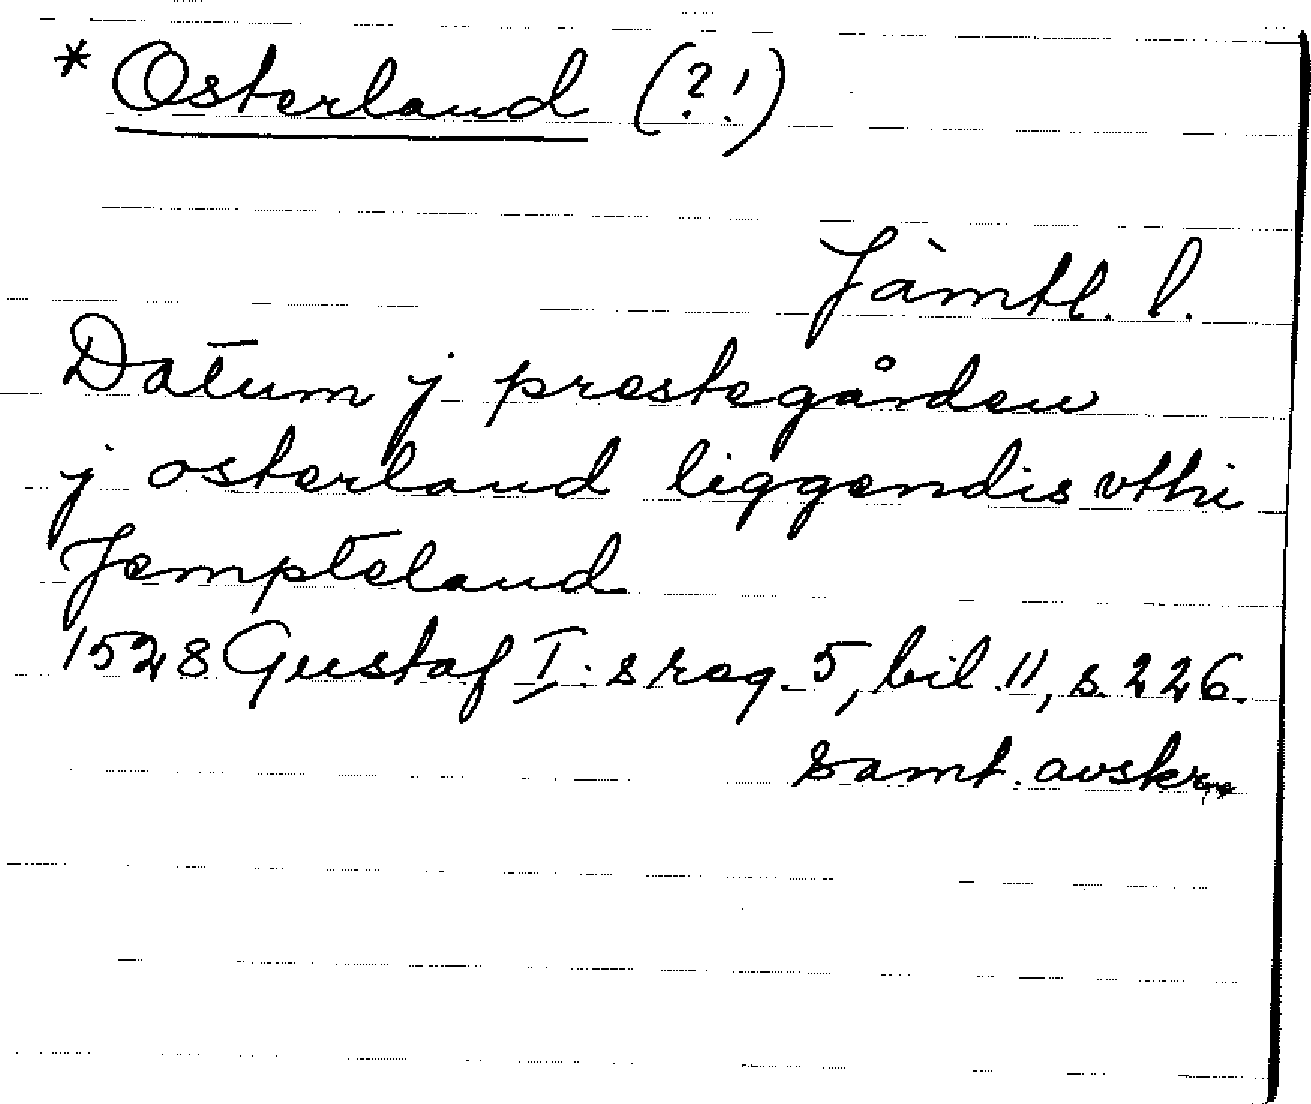 * Osterland (?!)
Jämtl. l.
Datum j prestegården
j osterland liggendis vthi
Jempteland
1528 Gustaf I:s reg. 5, bil. 11, s. 226.
samt. avskr.